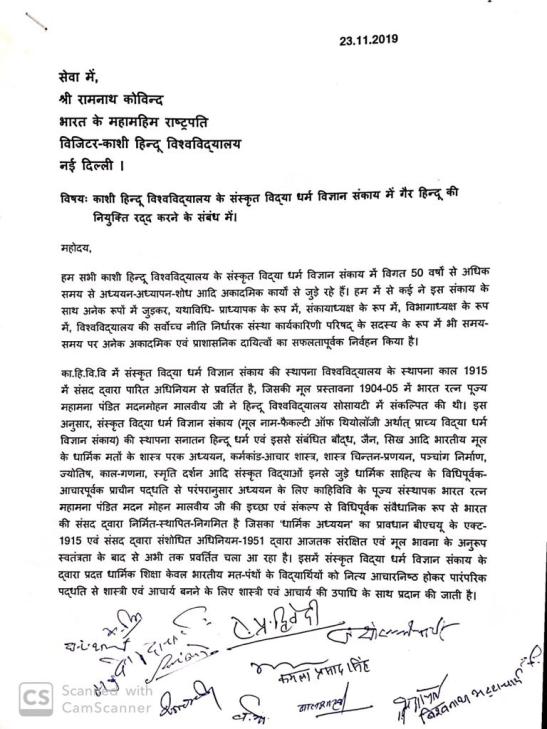 23.11.2019
सेवा में,
श्री रामनाथ कोविन्द
भारत के महामहिम राष्ट्रपति
विजिटर-काशी हिन्दू विश्वविद्यालय
नई दिल्ली ।
विषयः काशी हिन्दू विश्वविद्यालय के संस्कृत विद्या धर्म विज्ञान संकाय में गैर हिन्दू की
नियुक्ति रद्द करने के संबंध में।
महोदय,
हम सभी काशी हिन्दू विश्वविद्यालय के संस्कृत विद्या धर्म विज्ञान संकाय में विगत 50 वर्षों से अधिक
समय से अध्ययन-अध्यापन-शोध आदि अकादमिक कार्यों से जुड़े रहे हैं। हम में से कई ने इस संकाय के
साथ अनेक रूपों में जुड़कर, यथाविधि- प्राध्यापक के रूप में, संकायाध्यक्ष के रूप में, विभागाध्यक्ष के रूप
में, विश्वविद्यालय की सर्वोच्च नीति निर्धारक संस्था कार्यकारिणी परिषद् के सदस्य के रूप में भी समय-
समय पर अनेक अकादमिक एवं प्राशासनिक दायित्वों का सफलतापूर्वक निर्वहन किया है।
का.हि.वि.वि में संस्कृत विद्या धर्म विज्ञान संकाय की स्थापना विश्वविद्यालय के स्थापना काल 1915
में संसद द्वारा पारित अधिनियम से प्रवर्तित है, जिसकी मूल प्रस्तावना 1904-05 में भारत रत्न पूज्य
महामना पंडित मदनमोहन मालवीय जी ने हिन्दू विश्वविद्यालय सोसायटी में संकल्पित की थी। इस
अनुसार, संस्कृत विद्या धर्म विज्ञान संकाय (मूल नाम-फैकल्टी ऑफ थियोलॉजी अर्थात् प्राच्य विद्या धर्म
विज्ञान संकाय) की स्थापना सनातन हिन्दू धर्म एवं इससे संबंधित बौद्ध, जैन, सिख आदि भारतीय मूल
के धार्मिक मतों के शास्त्र परक अध्ययन, कर्मकांड-आचार शास्त्र, शास्त्र चिन्तन-प्रणयन, पञ्चांग निर्माण,
ज्योतिष, काल-गणना, स्मृति दर्शन आदि संस्कृत विद्याओं इनसे जुड़े धार्मिक साहित्य के विधिपूर्वक-
आचारपूर्वक प्राचीन पद्धति से परंपरानुसार अध्ययन के लिए काहिविवि के पूज्य संस्थापक भारत रत्न
महामना पंडित मदन मोहन मालवीय जी की इच्छा एवं संकल्प से विधिपूर्वक संवैधानिक रूप से भारत
की संसद द्वारा निर्मित-स्थापित-निगमित है जिसका 'धार्मिक अध्ययन' का प्रावधान बीएचयू के एक्ट-
1915 एवं संसद द्वारा संशोधित अधिनियम-1951 द्वारा आजतक संरक्षित एवं मूल भावना के अनुरूप
स्वतंत्रता के बाद से अभी तक प्रवर्तित चला आ रहा है। इसमें संस्कृत विद्या धर्म विज्ञान संकाय के
द्वारा प्रदत्त धार्मिक शिक्षा केवल भारतीय मत-पंथों के विद्यार्थियों को नित्य आचारनिष्ठ होकर पारंपरिक
पद्धति से शास्त्री एवं आचार्य बनने के लिए शास्त्री एवं आचार्य की उपाधि के साथ प्रदान की जाती है।
द्विवेदी
कमला प्रसाद सिंह
CS Scanned with
CamScanner